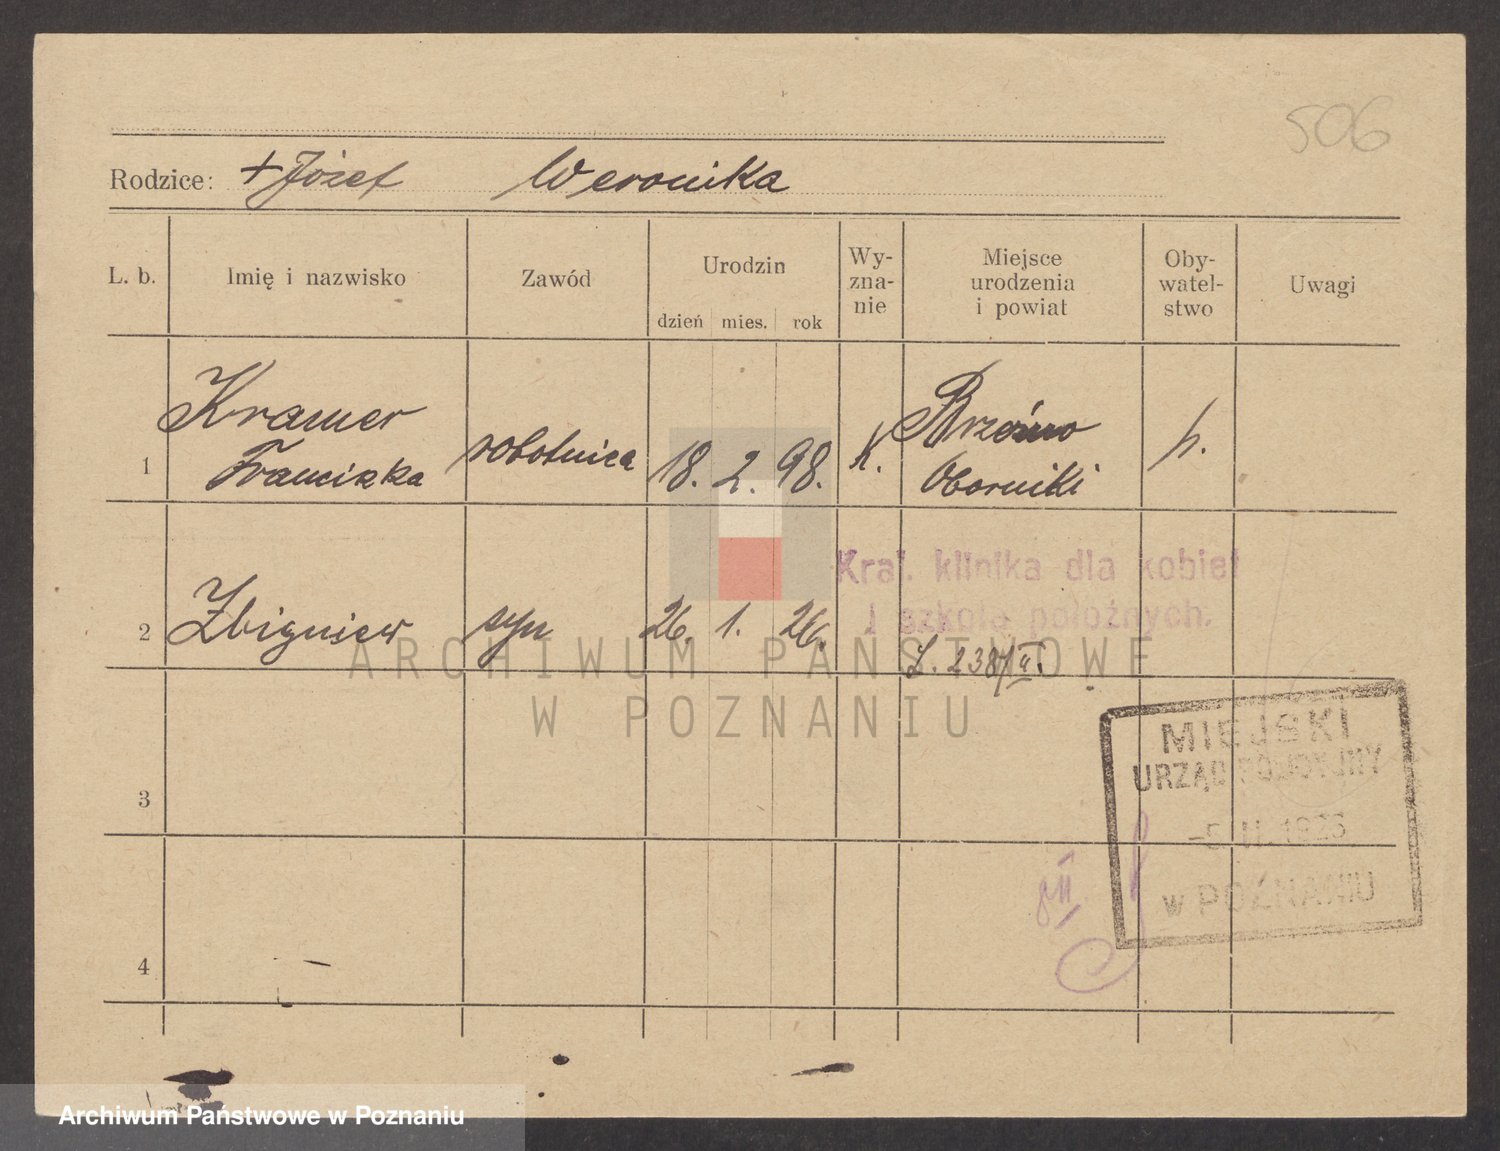 506
Rodzice: + Józef Weronika
L. b.
Imię i nazwisko
Zawód
Urodzin
dzień mies. rok
Wy-
zna-
nie
Miejsce
urodzenia
i powiat
Oby-
watel-
stwo
Uwagi
Kramer
1 Franciszka robotnica 18. 2. 98. K. Brzeźno p.
Oborniki
Kraj. klinika dla kobiet
i szkoła położnych.
2 Zbigniew syn 26. 1. 26.
L. 2387/
ARCHIWUM PAŃSTWOWE
W POZNANIU
MIEJSKI
URZĄD POLICYJNY
w POZNANIU
3
4
Archiwum Państwowe w Poznaniu